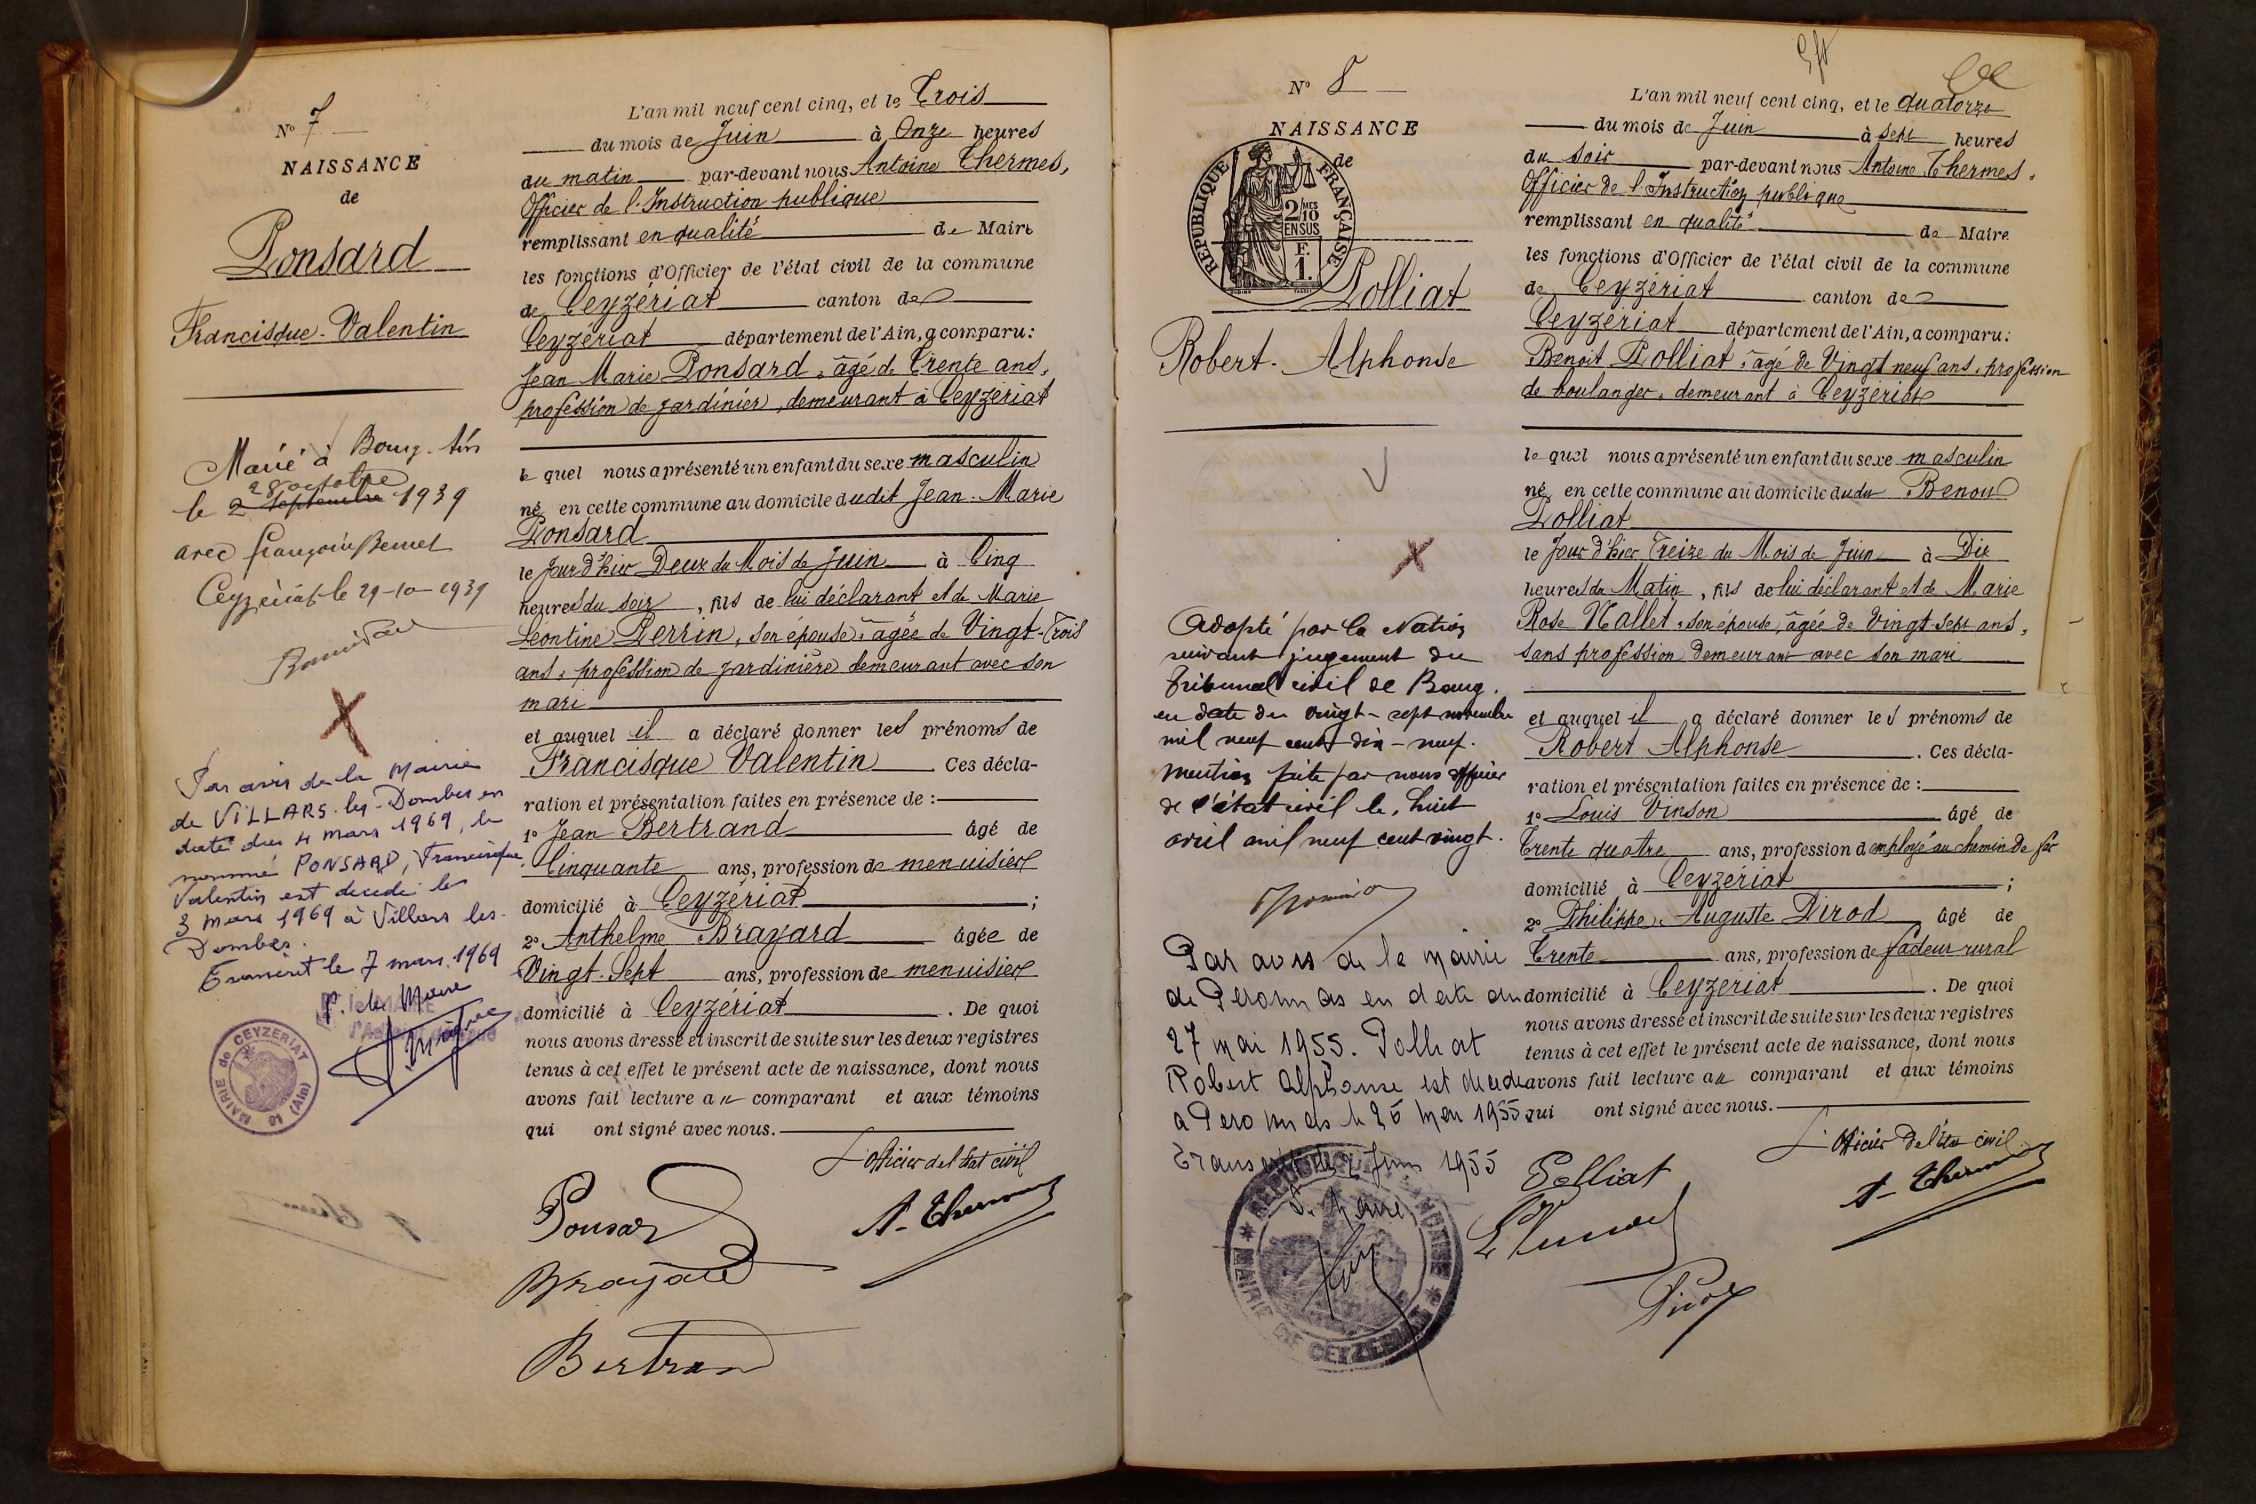 N° 7
NAISSANCE
de
Ponsard
Francisque-Valentin
Marié à Bourg
28 octobre
le 2 septembre 1939
avec
Ceyzériat le 29-10-1939
Par avis de la Mairie
de VILLARS-les-Dombes en
date du 4 mars 1969, le
nommé PONSARD, Francisque
Valentin est décédé le
3 mars 1969 à Villars les-
Dombes.
le 7 mars 1969
P. le Maire
MAIRIE de CEYZERIAT
(Ain)
L'an mil neuf cent cinq, et le Trois
du mois de Juin à Onze heures
du matin par-devant nous Antoine Thermes,
Officier de l'Instruction publique
remplissant en qualité de Maire
les fonctions d'Officier de l'état civil de la commune
de Ceyzériat canton de
Ceyzériat département de l'Ain, a comparu:
Jean Marie Ponsard, âgé de Trente ans,
profession de jardinier, demeurant à Ceyzériat
le quel nous a présenté un enfant du sexe masculin
né en cette commune au domicile dudit Jean-Marie
Ponsard
le jour d'hier Deux du Mois de Juin à Cinq
heures du soir, fils de lui déclarant et de Marie
Léontine Perrin, son épouse, âgée de Vingt-Trois
ans, profession de jardinière demeurant avec son
mari
et auquel il a déclaré donner les prénoms de
Francisque Valentin Ces décla-
ration et présentation faites en présence de :
1° Jean Bertrand âgé de
Cinquante ans, profession de menuisier
domicilié à Ceyzériat ;
2° Anthelme Brayard âgée de
Vingt-Sept ans, profession de menuisier
domicilié à Ceyzériat. De quoi
nous avons dressé et inscrit de suite sur les deux registres
tenus à cet effet le présent acte de naissance, dont nous
avons fait lecture au comparant et aux témoins
qui ont signé avec nous.
L'officier de l'état civil
Ponsard
A. Thermes
Brayard
Bertrand
N° 8
NAISSANCE
de
REPUBLIQUE FRANÇAISE
2/10 MES
EN SUS
F.
1.
Polliat
Robert-Alphonse
Adopté par la Nation
suivant jugement du
Tribunal civil de Bourg.
en date du vingt-sept novembre
mil neuf cent dix-neuf.
Mention faite par nous officier
de l'état civil le, huit
avril mil neuf cent vingt.
Par avis de la mairie
de Peronnas en date du
27 mai 1955. Polliat
Robert Alphonse est décédé
a Peronnas le 26 Mai 1955
Transcrit le 2 Juin 1955
Le Maire
MAIRIE DE CEYZERIAT
L'an mil neuf cent cinq, et le quatorze
du mois de Juin à sept heures
du soir par-devant nous Antoine Thermes,
Officier de l'Instruction publique
remplissant en qualité de Maire
les fonctions d'Officier de l'état civil de la commune
de Ceyzériat canton de
Ceyzériat département de l'Ain, a comparu:
Benoit Polliat, âgé de Vingt neuf ans, profession
de boulanger, demeurant à Ceyzériat
le quel nous a présenté un enfant du sexe masculin
né en cette commune au domicile dudit Benoit
Polliat
le Jour d'hier Treize du Mois de Juin à Dix
heures du Matin, fils de lui déclarant et de Marie
Rose Mallet, son épouse, âgée de Vingt-sept ans,
sans profession demeurant avec son mari
et auquel il a déclaré donner les prénoms de
Robert Alphonse. Ces décla-
ration et présentation faites en présence de :
1° Louis Vinson âgé de
Trente quatre ans, profession d'employé au chemin de fer
domicilié à Ceyzériat ;
2° Philippe-Auguste Pirod âgé de
Trente ans, profession de facteur rural
domicilié à Ceyzériat. De quoi
nous avons dressé et inscrit de suite sur les deux registres
tenus à cet effet le présent acte de naissance, dont nous
avons fait lecture au comparant et aux témoins
qui ont signé avec nous.
L'officier de l'état civil
Polliat
A. Thermes
Pirod